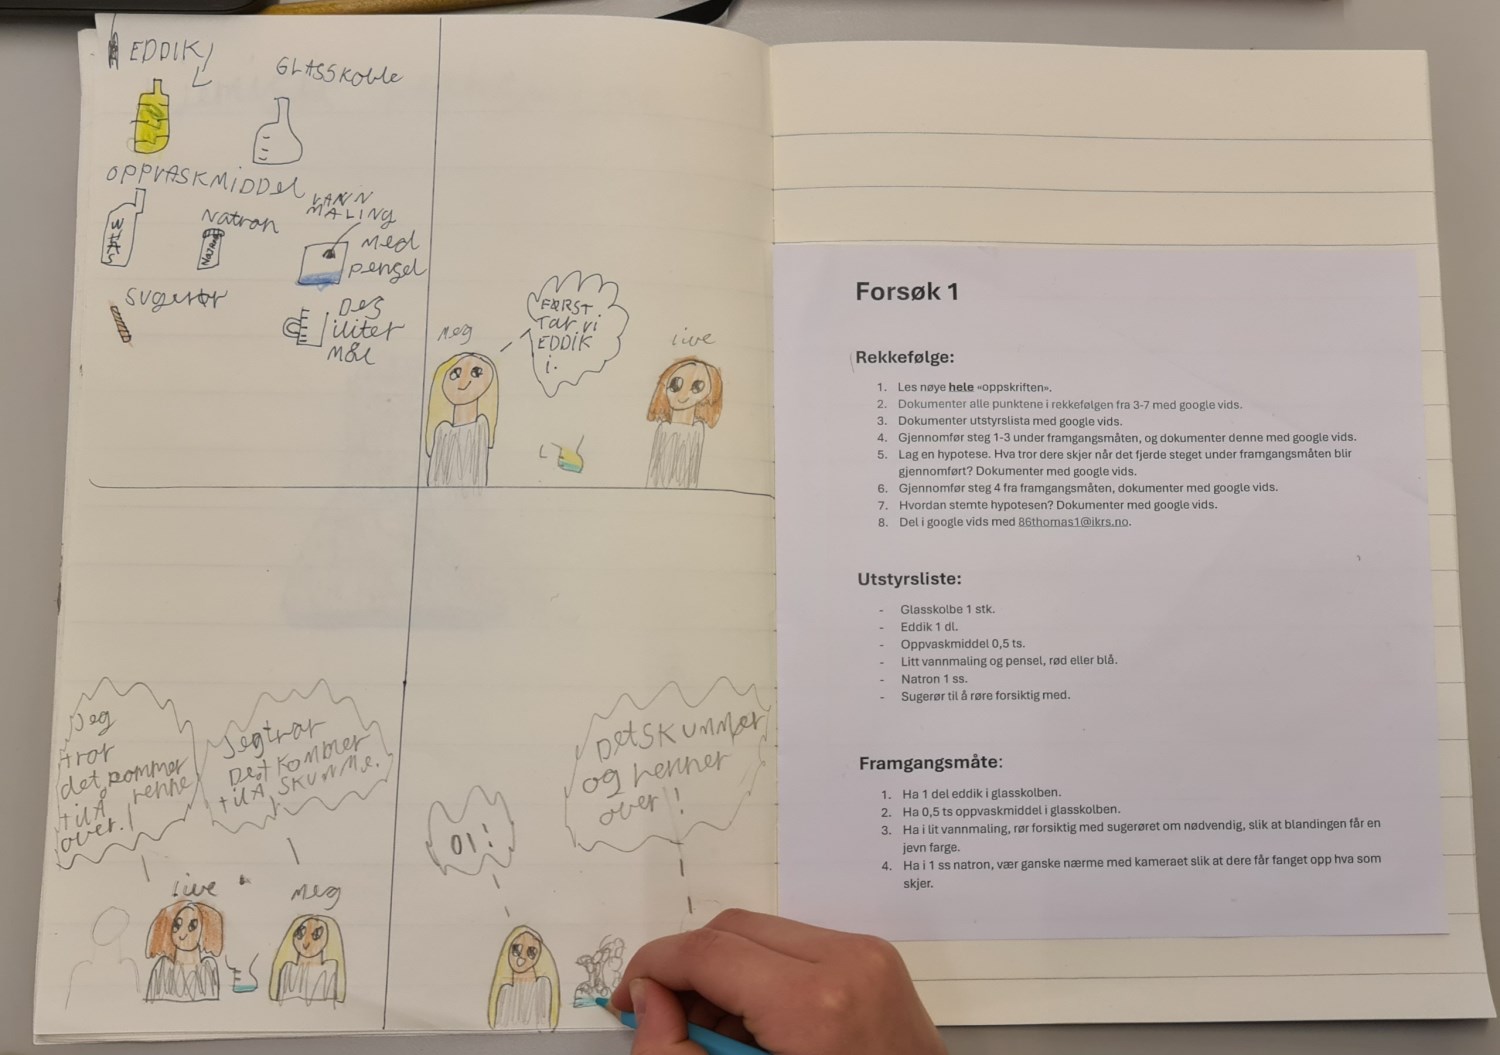 EDDIK
GLASSKOLLE
OPPVASKMIDDEL
VANN
MALING
Med
pensel
Natron
sugerør
Des
iliter
Mål
FØRST
Tar vi
EDDIK
i.
Meg
live
Jeg
tror
det kommer
til Å renne
over!
Jeg tror
Det kommer
til Å SKUMME.
live
Meg
OI!
Det SKUMMER
og renner
over!
Forsøk 1
Rekkefølge:
1. Les nøye hele «oppskriften».
2. Dokumenter alle punktene i rekkefølgen fra 3-7 med google vids.
3. Dokumenter utstyrslista med google vids.
4. Gjennomfør steg 1-3 under framgangsmåten, og dokumenter denne med google vids.
5. Lag en hypotese. Hva tror dere skjer når det fjerde steget under framgangsmåten blir
gjennomført? Dokumenter med google vids.
6. Gjennomfør steg 4 fra framgangsmåten, dokumenter med google vids.
7. Hvordan stemte hypotesen? Dokumenter med google vids.
8. Del i google vids med 86thomas1@ikrs.no.
Utstyrsliste:
- Glasskolbe 1 stk.
- Eddik 1 dl.
- Oppvaskmiddel 0,5 ts.
- Litt vannmaling og pensel, rød eller blå.
- Natron 1 ss.
- Sugerør til å røre forsiktig med.
Framgangsmåte:
1. Ha 1 del eddik i glasskolben.
2. Ha 0,5 ts oppvaskmiddel i glasskolben.
3. Ha i lit vannmaling, rør forsiktig med sugerøret om nødvendig, slik at blandingen får en
jevn farge.
4. Ha i 1 ss natron, vær ganske nærme med kameraet slik at dere får fanget opp hva som
skjer.